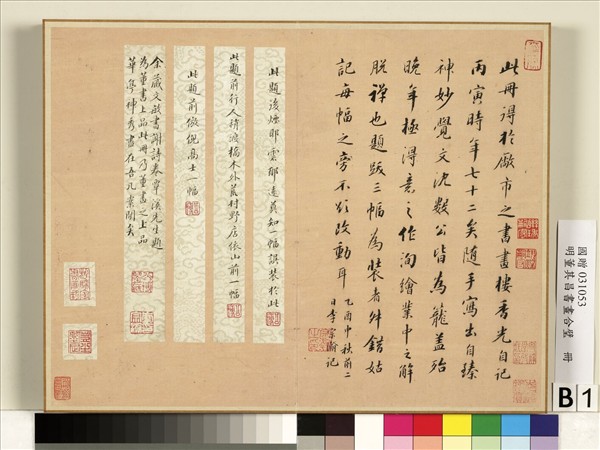 此冊得於厰市之書畫樓香光自記
丙寅時年七十二矣隨手寫出自臻
神妙覺文沈數公皆為籠蓋殆
晚年極得意之作洵繪業中之解
脫禪也題跋三幅為裝者舛錯姑
記每幅之旁不欲改動耳
乙酉中秋前二
日李宗瀚記
此題後煙耶雲耶遠莫知一幅誤裝於此
此題前行人待渡橋木外荒村野店依山前一幅
此題前倣倪高士一幅
余藏文敏書謝詩奉章溪先生題
為董書上品此冊乃董畫之上品
華亭神秀盡在吾几案間矣
國贈 031053
明董其昌書畫合璧 冊
B 1